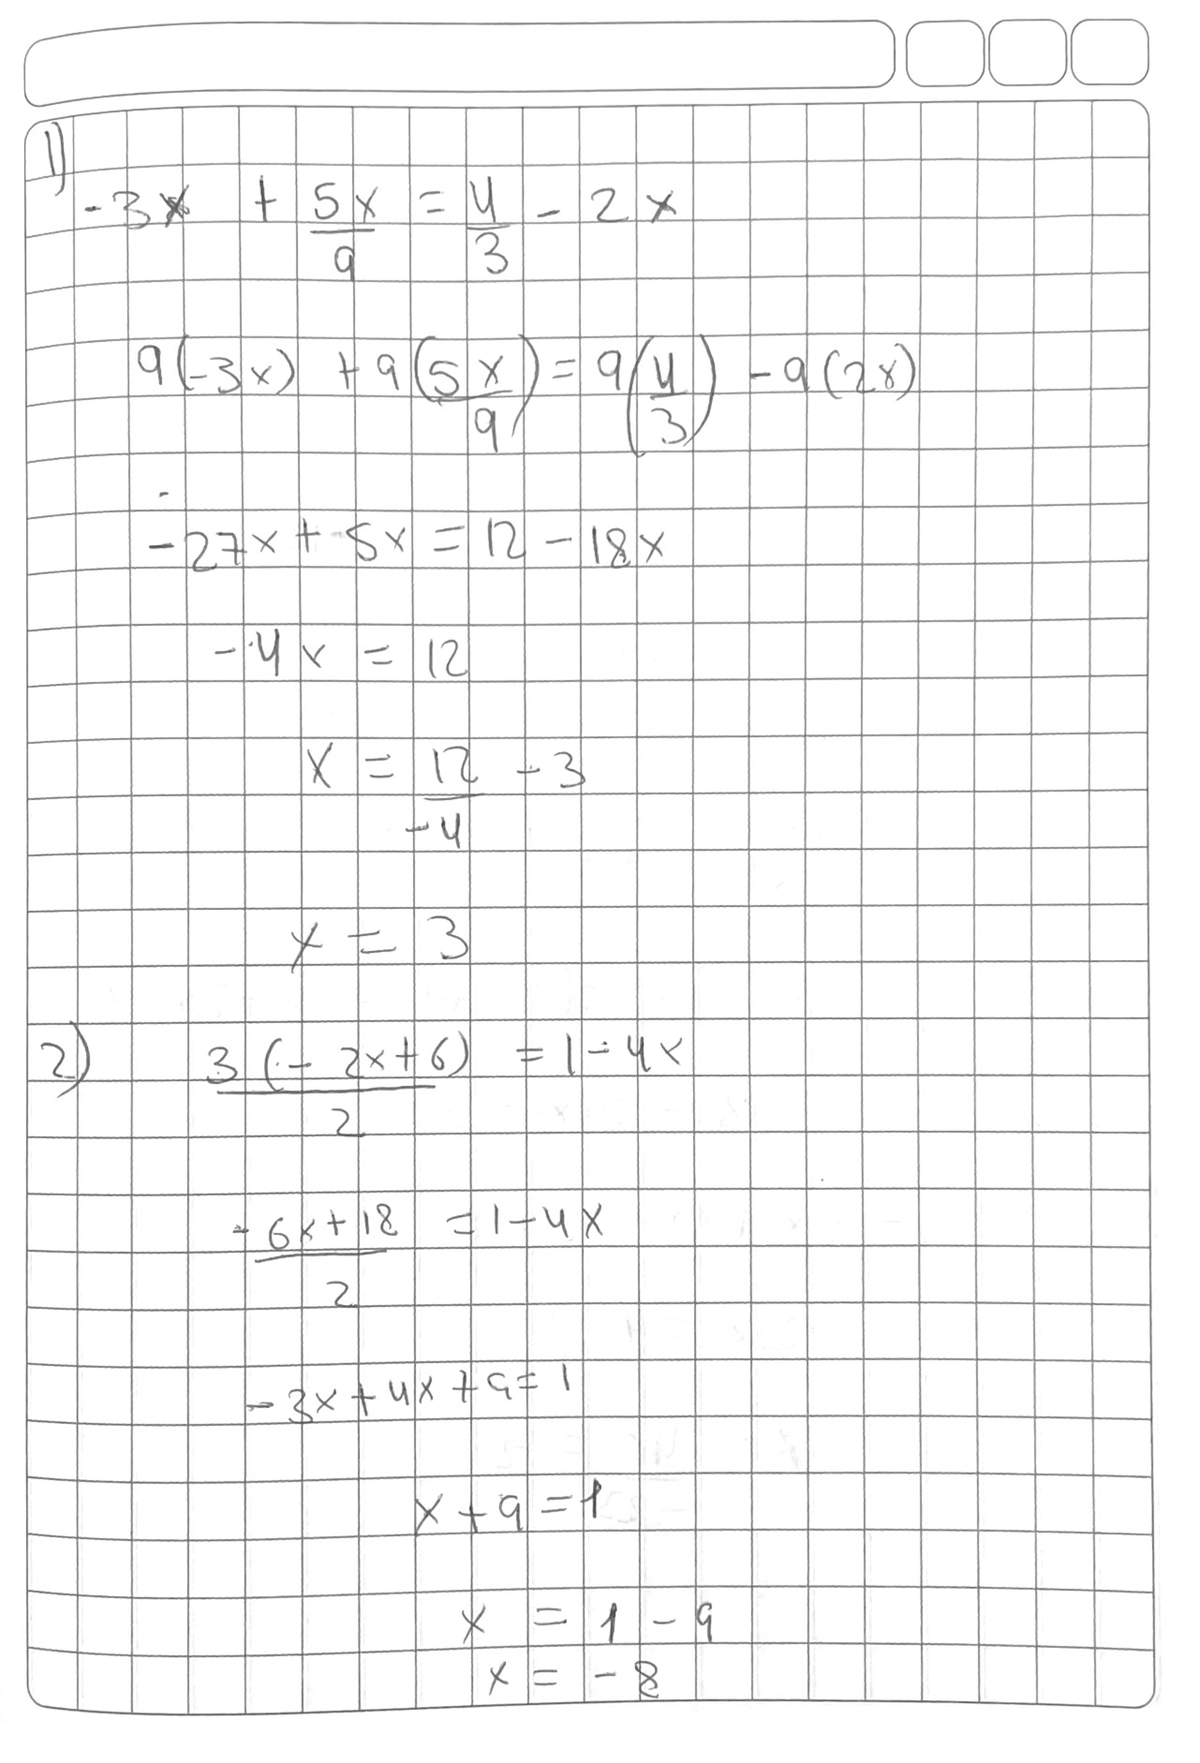 1)
-3x + 5x/9 = 4/3 - 2x
9(-3x) + 9(5x/9) = 9(4/3) - 9(2x)
-27x + 5x = 12 - 18x
-4x = 12
x = 12/-4 - 3
x = 3
2) 3(-2x+6)/2 = 1-4x
-6x+18/2 = 1-4x
-3x+4x+9=1
x+9=1
x = 1 - 9
x = -8